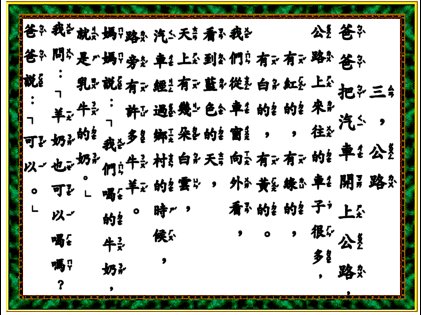 三，公路
爸爸把汽車開上公路，
公路上來往的車子很多，
有紅的，有綠的，
有白的，有黃的。
我們從車窗向外看，
看到藍色的天，
天上有幾朵白雲，
汽車經過鄉村的時候，
路旁有許多牛羊。
媽媽説：「我們喝的牛奶，
就是乳牛的奶。」
我問：「羊奶也可以喝嗎？
爸爸説：「可以。」